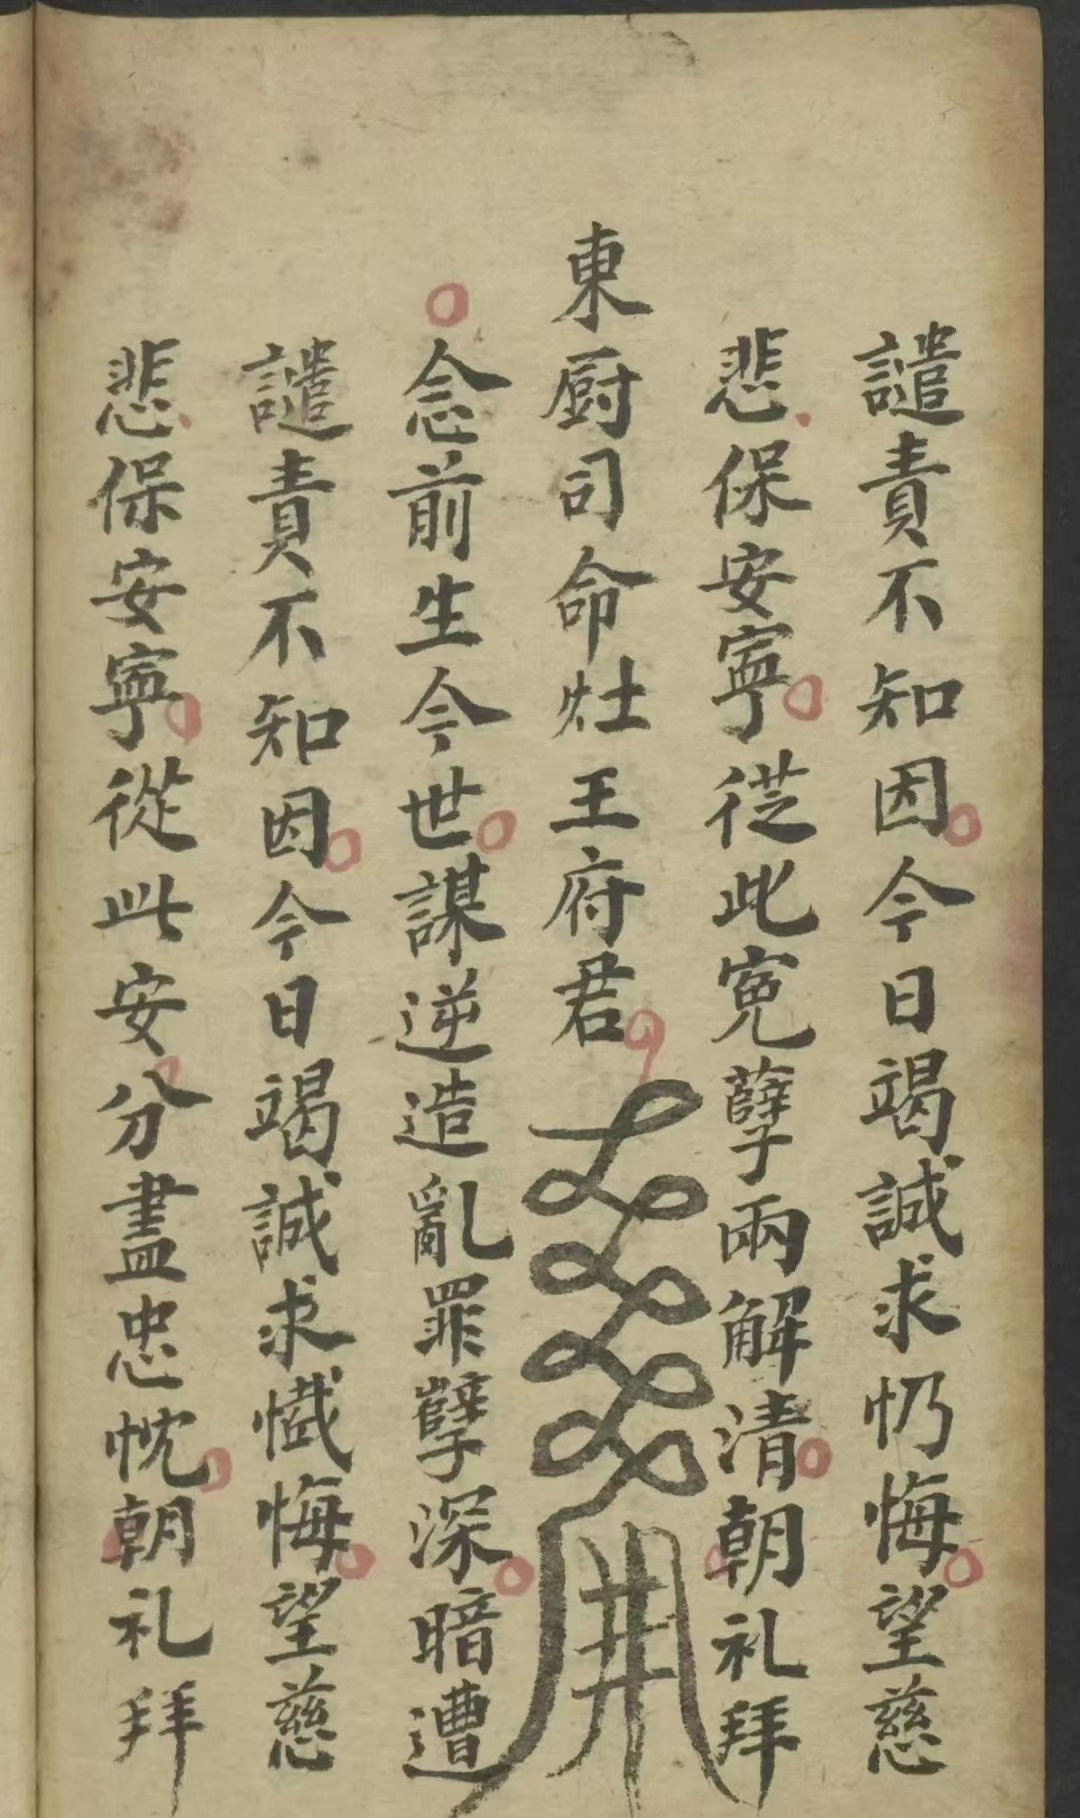 譴責不知因今日竭誠求忉悔望慈
悲保安寧從此寃孽兩解清朝礼拜
東厨司命灶王府君
念前生今世謀逆造亂罪孽深暗遭
譴責不知因今日竭誠求懺悔望慈
悲保安寧從此安分盡忠忱朝礼拜